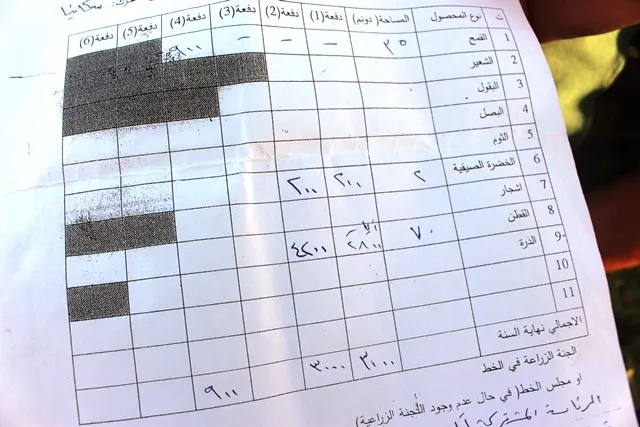 ت نوع المحصول المساحة( دونم) دفعة(1) دفعة(2) دفعة(3) دفعة(4) دفعة(5) دفعة(6)
1 القمح ٣٥ – – – ٩٠٠
2 الشعير
3 البقول
4 البصل
5 الثوم
6 الخضرة الصيفية ٢ ٢٠٠ ٢٠٠
7 اشجار
8 القطن ٧٠ ٢٨٠٠ ٤٢٠٠
9 الذرة
10
11
الاجمالي نهاية السنة ٣٠٠٠ ٣٠٠٠ ٩٠٠
الجنة الزراعة في الخط
او مجلس الخط( في حال عدم وجود اللجنة الزراعية)
الرئاسة المشتركة